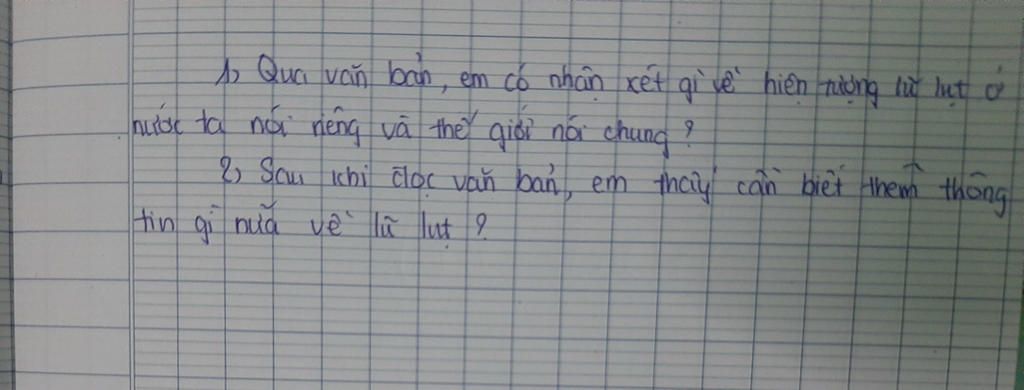 1, Qua văn bản, em có nhận xét gì về hiện tượng lũ lụt ở
nước ta nói riêng và thế giới nói chung ?
2, Sau khi đọc văn bản, em thấy cần biết thêm thông
tin gì nữa về lũ lụt ?